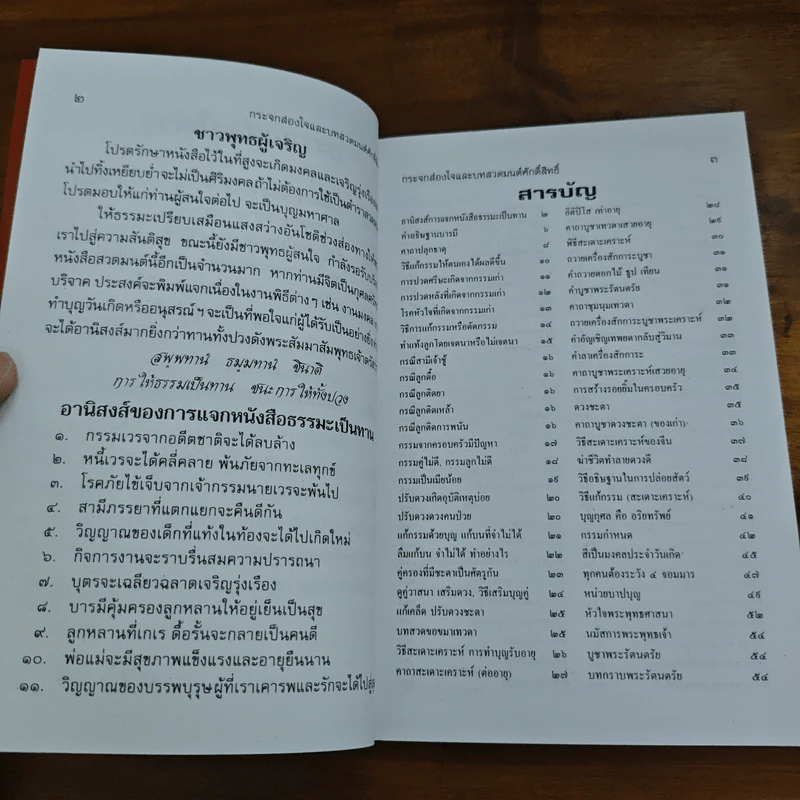 ๒
กระจกส่องใจและบทสวดมนต์ศักดิ์
ชาวพุทธผู้เจริญ
โปรดรักษาหนังสือไว้ในที่สูงจะเกิดมงคลและเจริญรุ่งเรือง
นำไปทิ้งเหยียบย่ำจะไม่เป็นศิริมงคลถ้าไม่ต้องการใช้เป็นตำราสวดมนต์
โปรดมอบให้แก่ท่านผู้สนใจต่อไป จะเป็นบุญมหาศาล
ให้ธรรมะเปรียบเสมือนแสงสว่างอันโชติช่วงส่องทางให้
เราไปสู่ความสันติสุข ขณะนี้ยังมีชาวพุทธผู้สนใจ กำลังรอรับ
หนังสือสวดมนต์นี้อีกเป็นจำนวนมาก หากท่านมีจิตเป็นกุศล
บริจาค ประสงค์จะพิมพ์แจกเนื่องในงานพิธีต่างๆ เช่น งานมงคล
ทำบุญวันเกิดหรืออนุสรณ์ฯ จะเป็นที่พอใจแก่ผู้ได้รับเป็นอย่างยิ่ง
จะได้อานิสงส์มากยิ่งกว่าทานทั้งปวงดังพระสัมมาสัมพุทธเจ้าตรัส
สพฺพทานํ ธมฺมทานํ ชินาติ
การให้ธรรมเป็นทาน ชนะการให้ทั้งปวง
อานิสงส์ของการแจกหนังสือธรรมะเป็นทาน
๑. กรรมเวรจากอดีตชาติจะได้ลบล้าง
๒. หนี้เวรจะได้คลี่คลาย พ้นภัยจากทะเลทุกข์
๓. โรคภัยไข้เจ็บจากเจ้ากรรมนายเวรจะพ้นไป
๔. สามีภรรยาที่แตกแยกจะคืนดีกัน
๕. วิญญาณของเด็กที่แท้งในท้องจะได้ไปเกิดใหม่
๖. กิจการงานจะราบรื่นสมความปรารถนา
๗. บุตรจะเฉลียวฉลาดเจริญรุ่งเรือง
๘. บารมีคุ้มครองลูกหลานให้อยู่เย็นเป็นสุข
๙. ลูกหลานที่เกเร ดื้อรั้นจะกลายเป็นคนดี
๑๐. พ่อแม่จะมีสุขภาพแข็งแรงและอายุยืนนาน
๑๑. วิญญาณของบรรพบุรุษ ผู้ที่เราเคารพและรักจะได้ไปสู่
กระจกส่องใจและบทสวดมนต์ศักดิ์สิทธิ์ ๓
สารบัญ
อานิสงส์การแจกหนังสือธรรมะเป็นทาน ๒
คำอธิษฐานบารมี ๖
คาถาปลุกธาตุ ๘
วิธีแก้กรรมให้ตนเองได้ผลดีขึ้น ๑๐
การปวดศรีษะเกิดจากกรรมเก่า ๑๑
การปวดหลังที่เกิดจากกรรมเก่า ๑๒
โรคหัวใจที่เกิดจากกรรมเก่า ๑๓
วิธีการแก้กรรมหรือตัดกรรม ๑๔
ทำแท้งลูกโดยเจตนาหรือไม่เจตนา ๑๕
กรณีสามีเจ้าชู้ ๑๖
กรณีลูกดื้อ ๑๖
กรณีลูกติดยา ๑๖
กรณีลูกติดเหล้า ๑๖
กรณีลูกติดการพนัน ๑๖
กรรมจากครอบครัวมีปัญหา ๑๗
กรรมคู่ไม่ดี, กรรมลูกไม่ดี ๑๘
กรรมเป็นเมียน้อย ๑๙
ปรับดวงเกิดอุบัติเหตุบ่อย ๒๐
ปรับดวงดวงคนป่วย ๒๐
แก้กรรมด้วยบุญ แก้บนที่จำไม่ได้ ๒๑
ลืมแก้บน จำไม่ได้ ทำอย่างไร ๒๒
คู่ครองที่มีชะตาเป็นศัตรูกัน ๒๓
ดูคู่วาสนา เสริมดวง, วิธีเสริมบุญคู่ ๒๔
แก้เคล็ด ปรับดวงชะตา ๒๕
บทสวดขอขมาเทวดา ๒๕
วิธีสะเดาะเคราะห์ การทำบุญรับอายุ ๒๖
คาถาสะเดาะเคราะห์ (ต่ออายุ) ๒๗
อิติปิโส เท่าอายุ ๒๘
คาถาบูชาเทวดาเสวยอายุ ๒๙
พิธีสะเดาะเคราะห์ ๓๐
ถวายเครื่องสักการะบูชา ๓๑
คำถวายดอกไม้ ธูป เทียน ๓๑
คำบูชาพระรัตนตรัย ๓๑
คำชุมนุมเทวดา ๓๒
ถวายเครื่องสักการะบูชาพระเคราะห์ ๓๒
คำอัญเชิญเทพยดากลับสู่วิมาน ๓๓
คำลาเครื่องสักการะ ๓๓
คำถาบูชาพระเคราะห์เสวยอายุ ๓๔
การสร้างรอยยิ้มในครอบครัว ๓๕
ดวงชะตา ๓๕
คาถาบูชาดวงชะตา (ของเก่า) ๓๖
วิธีสะเดาะเคราะห์ของจีน ๓๗
ฆ่าชีวิตทำลายดวงดี ๓๘
วิธีอธิษฐานในการปล่อยสัตว์ ๓๙
วิธีแก้กรรม (สะเดาะเคราะห์) ๔๐
บุญกุศล คือ อริยทรัพย์ ๔๑
กรรมกำหนด ๔๒
สีเป็นมงคลประจำวันเกิด ๔๕
ทุกคนต้องระวัง ๔ จอมมาร ๔๗
หน่วยบาปบุญ ๔๙
หัวใจพระพุทธศาสนา ๕๒
นมัสการพระพุทธเจ้า ๕๔
บูชาพระรัตนตรัย ๕๔
บทกราบพระรัตนตรัย ๕๔